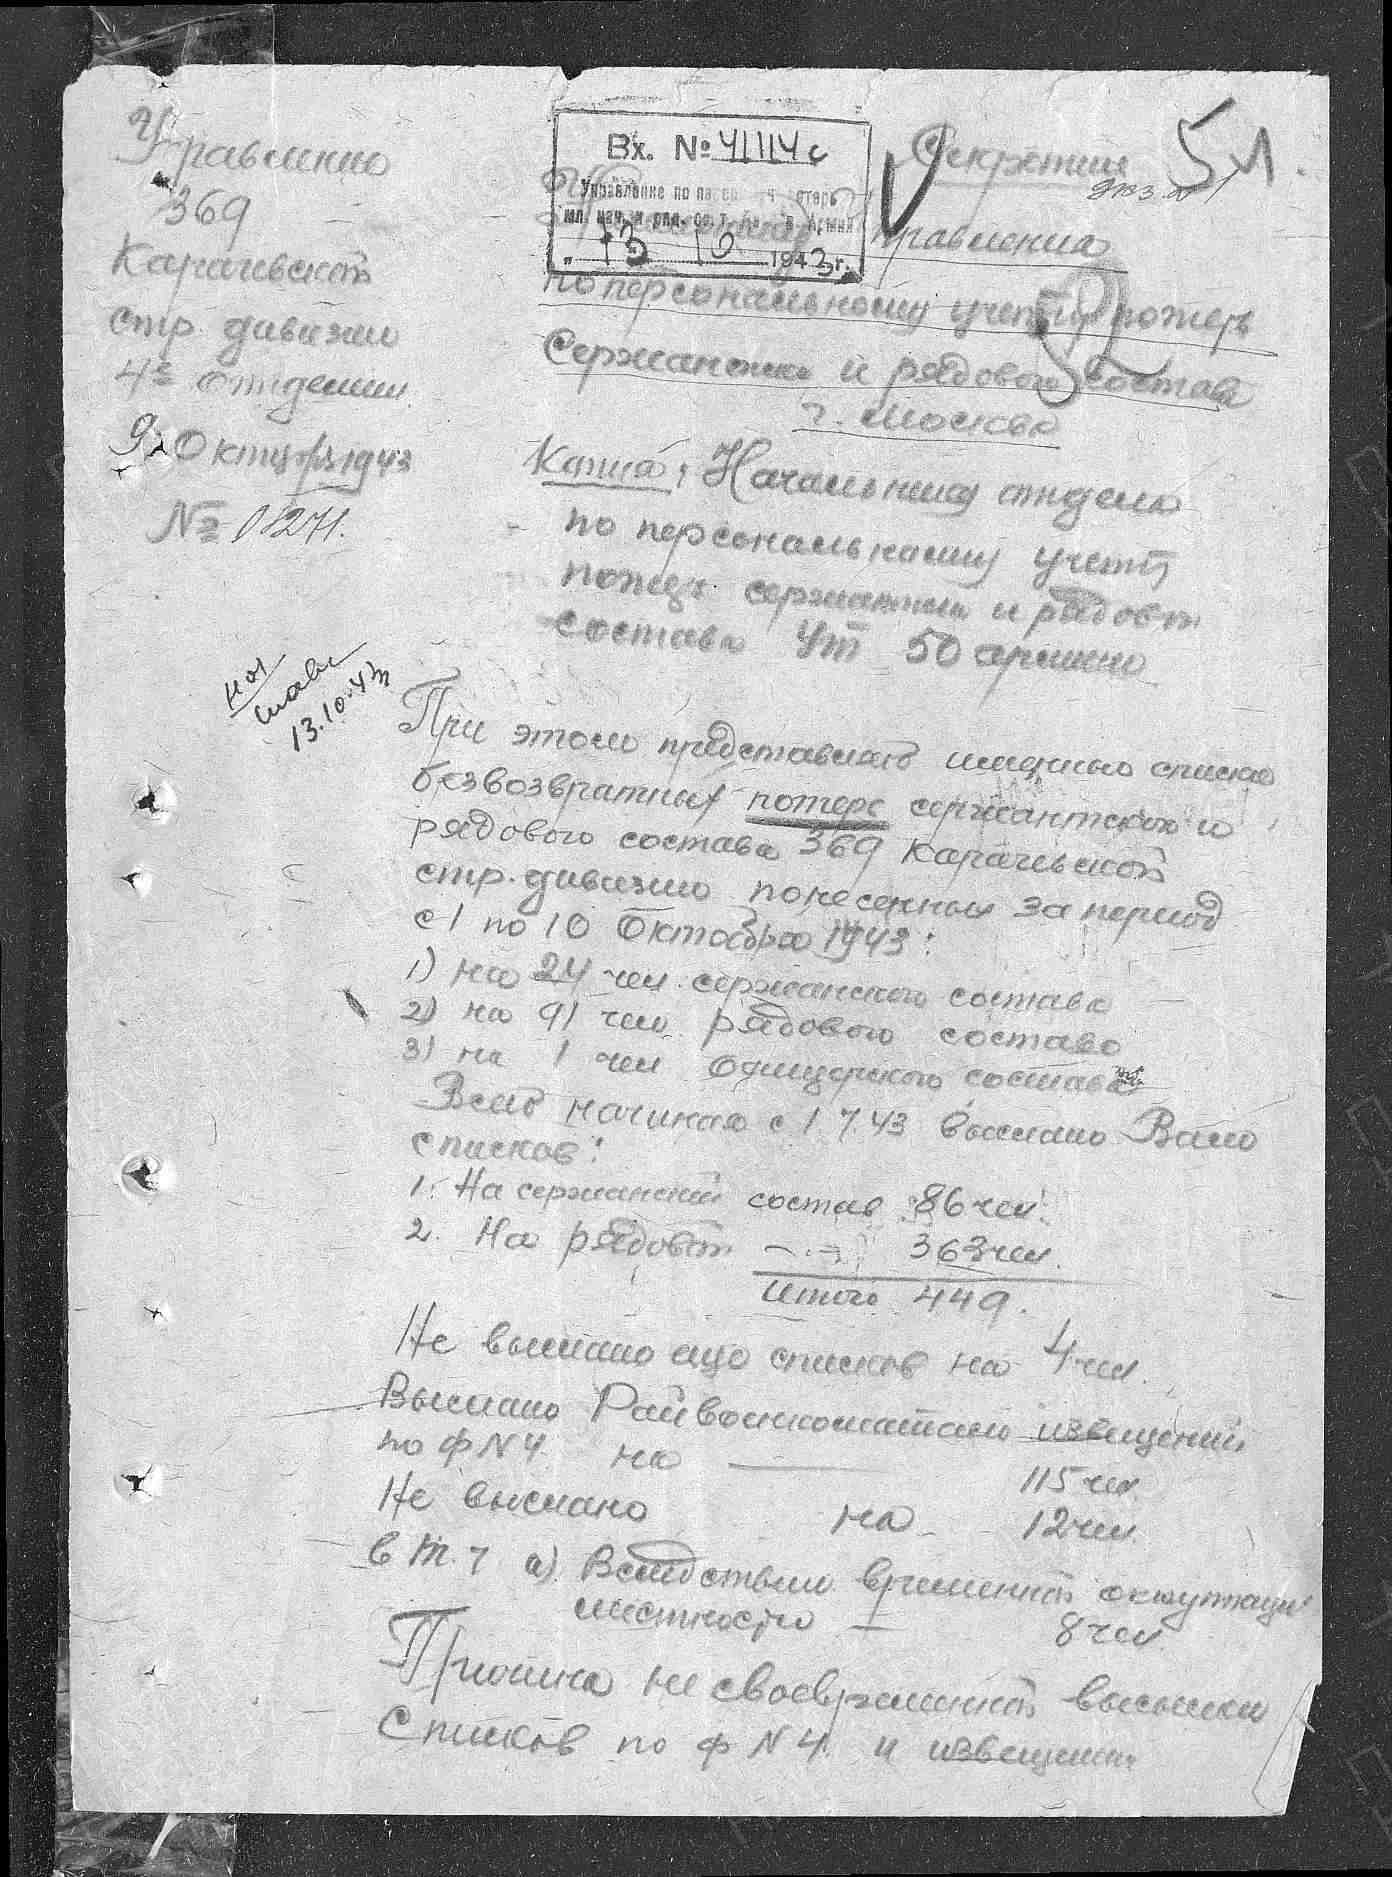 Управление
369
Карачевской
стр. дивизии
4е отделении
9 Октября 1943
№ 01271.
Вх. № 41114с
Управление по персо
мл. нач. и ряд. сост. Армии
"13 10 1943 г.
Секретно
экз. № 1
5л.
управления
по персональному учету потерь
Сержантско и рядового состава
г. Москва
Копия: Начальнику отдела
по персональному учету
потерь сержантско и рядовог
состава 50 армии
13.10.43
При этом представляю именные списки
безвозвратных потерь сержантского и
рядового состава 369 Карачевской
стр. дивизии понесенных за период
с 1 по 10 Октября 1943:
1) на 24 чел. сержанского состава
2) на 91 чел рядового состава
3) на 1 чел офицерского состава
Всего начиная с 1 7.43 выслано Вам
списков:
1. На сержанский состав 86 чел.
2. На рядовой -"- 363 чел.
Итого 449.
Не выслано еще списков на 4 чел.
Выслано Райвоенкоматам извещений
по ф N 4. на — 115 чел.
Не выслано на 12 чел.
в т. ч а) Вследствии временной оккупации
местности — 8 чел
Причина не своевременной высылки
Списков по ф N 4. и извещений